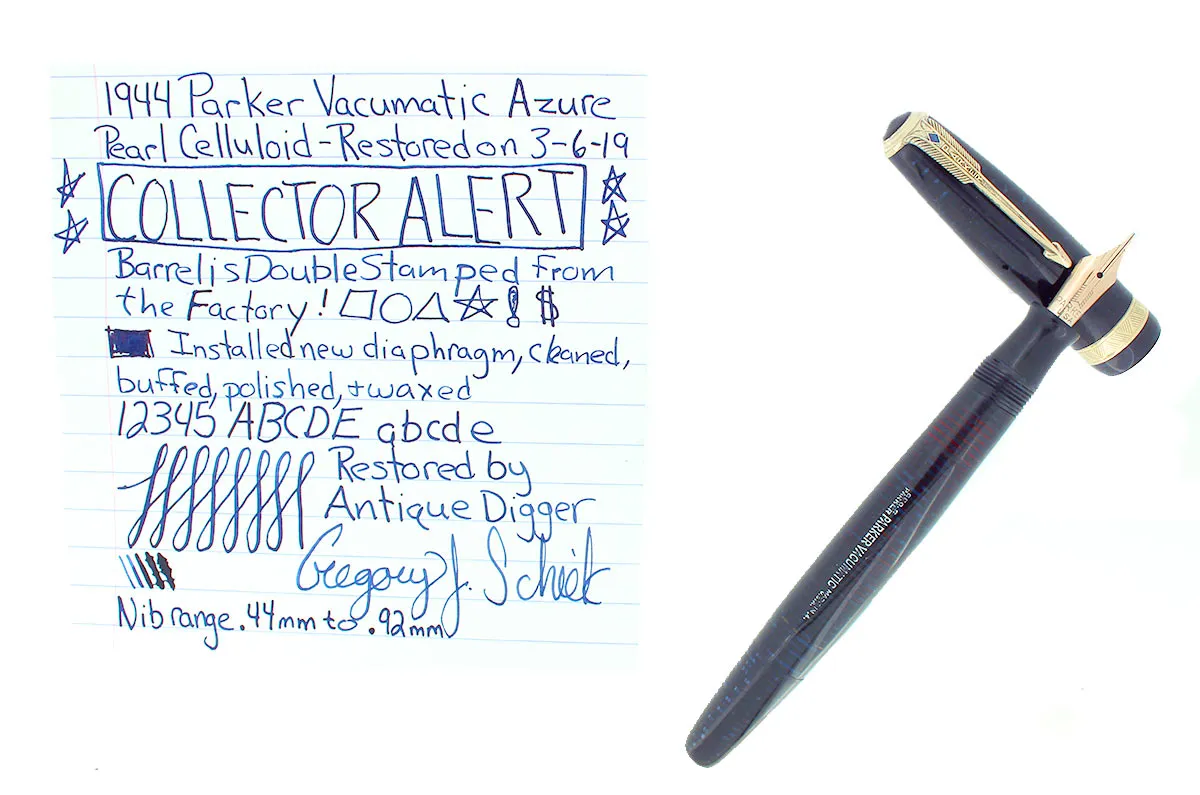 1944 Parker Vacumatic Azure
Pearl Celluloid - Restored on 3-6-19
COLLECTOR ALERT
Barrel is Double Stamped from
the Factory! □○△☆!$
Installed new diaphragm, cleaned,
buffed, polished, + waxed
12345 ABCDE abcde
Restored by
Antique Digger
Gregory J. Schiek
Nib range .44mm to .92mm
PARKER VACUMATIC